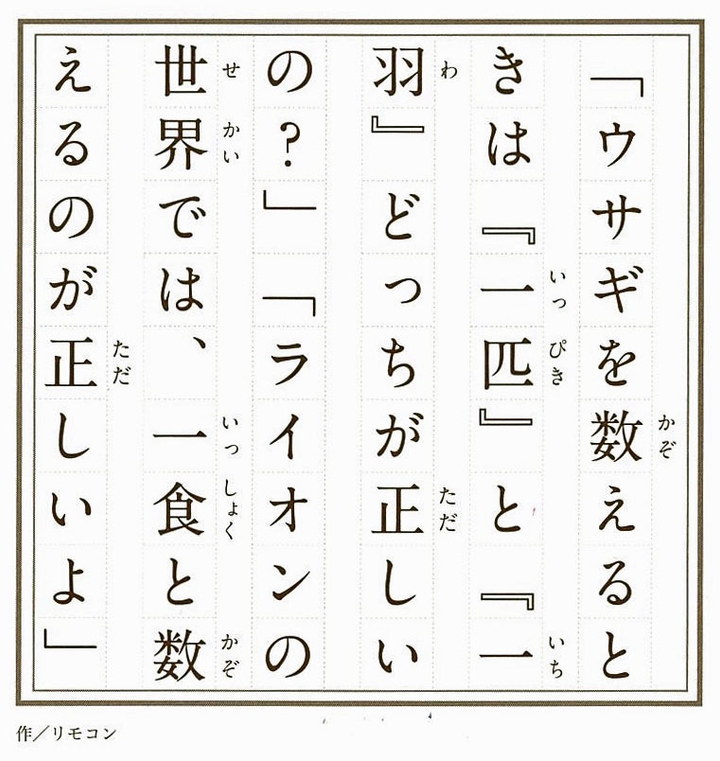 「ウサギを数えると
きは『一匹』と『一
羽』どっちが正しい
の？」「ライオンの
世界では、一食と数
えるのが正しいよ」
かぞ
いっ ぴき いち
わ ただ
せ かい いっ しょく かぞ
ただ
作／リモコン